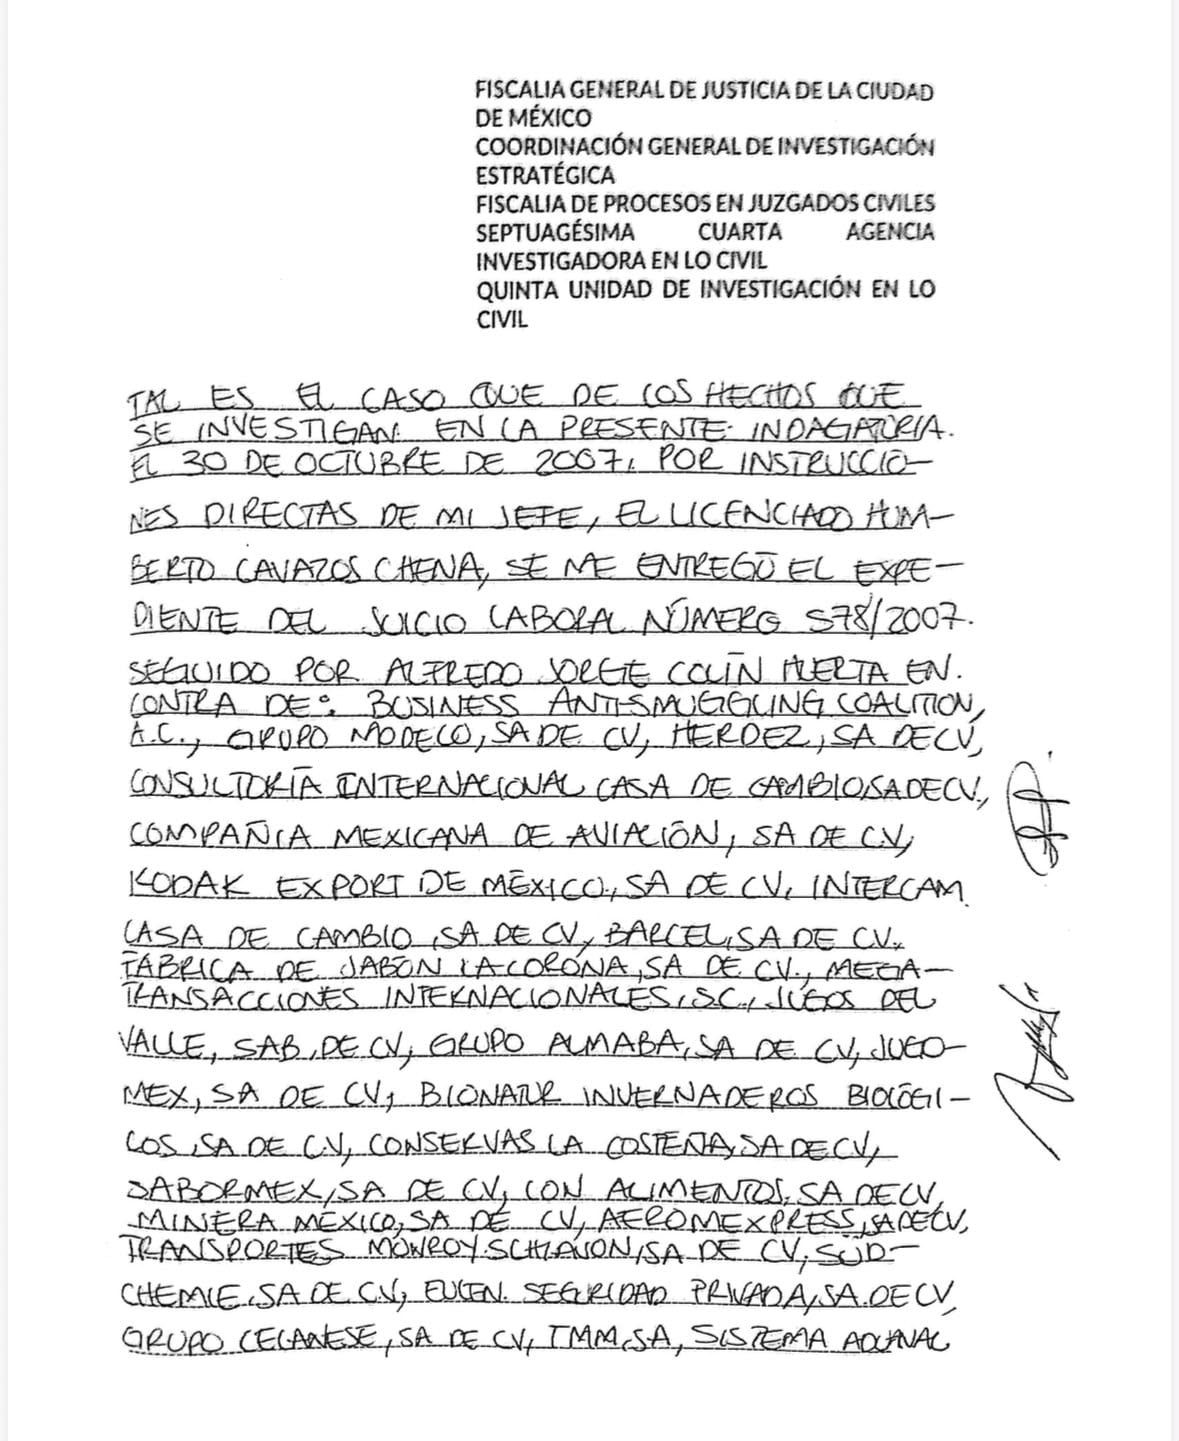 FISCALIA GENERAL DE JUSTICIA DE LA CIUDAD
DE MÉXICO
COORDINACIÓN GENERAL DE INVESTIGACIÓN
ESTRATÉGICA
FISCALIA DE PROCESOS EN JUZGADOS CIVILES
SEPTUAGÉSIMA CUARTA AGENCIA
INVESTIGADORA EN LO CIVIL
QUINTA UNIDAD DE INVESTIGACIÓN EN LO
CIVIL
TAL ES EL CASO QUE DE LOS HECHOS QUE
SE INVESTIGAN EN LA PRESENTE INDAGATORIA.
EL 30 DE OCTUBRE DE 2007, POR INSTRUCCIO-
NES DIRECTAS DE MI JEFE, EL LICENCIADO HUM-
BERTO CAVAZOS CHENA, SE ME ENTREGÓ EL EXPE-
DIENTE DEL JUICIO LABORAL NÚMERO 578/2007.
SEGUIDO POR ALFREDO JORGE COLÍN HUERTA EN.
CONTRA DE: BUSINESS ANTI-SMUGGLING COALITION,
A.C., GRUPO MODELO, SA DE CV, HERDEZ, SA DE CV,
CONSULTORÍA INTERNACIONAL CASA DE CAMBIO, SA DE CV.,
COMPAÑIA MEXICANA DE AVIACIÓN, SA DE C.V,
KODAK EXPORT DE MÉXICO., SA DE CV, INTERCAM
CASA DE CAMBIO, SA DE CV, BARCEL, SA DE CV.
FÁBRICA DE JABÓN LA CORONA, SA DE CV., MEGA-
TRANSACCIONES INTERNACIONALES, S.C., JUGOS DEL
VALLE, SAB, DE CV, GRUPO ALMABA, SA DE CV, JUGO-
MEX, SA DE CV, BIONATUR INVERNADEROS BIOLÓGI-
COS, SA DE C.V, CONSERVAS LA COSTEÑA, SA DE CV,
SABORMEX, SA DE CV, CON ALIMENTOS, SA DE CV,
MINERA MÉXICO, SA DE CV, AEROMEXPRESS, SA DE CV,
TRANSPORTES MONROY SCHIAVON, SA DE CV, SÜD-
CHEMIE, SA DE C.V, EULEN SEGURIDAD PRIVADA, SA DE CV,
GRUPO CELANESE, SA DE CV, TMM, SA, SISTEMA ADUANAL